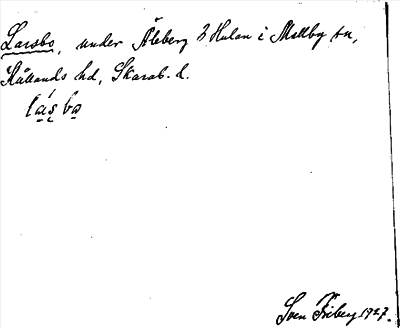 Larsbo, under Åleberg 3 Hulan i Mellby sn,
Kållands hd, Skarab. l.
lásbo
Sven Friberg 1927.